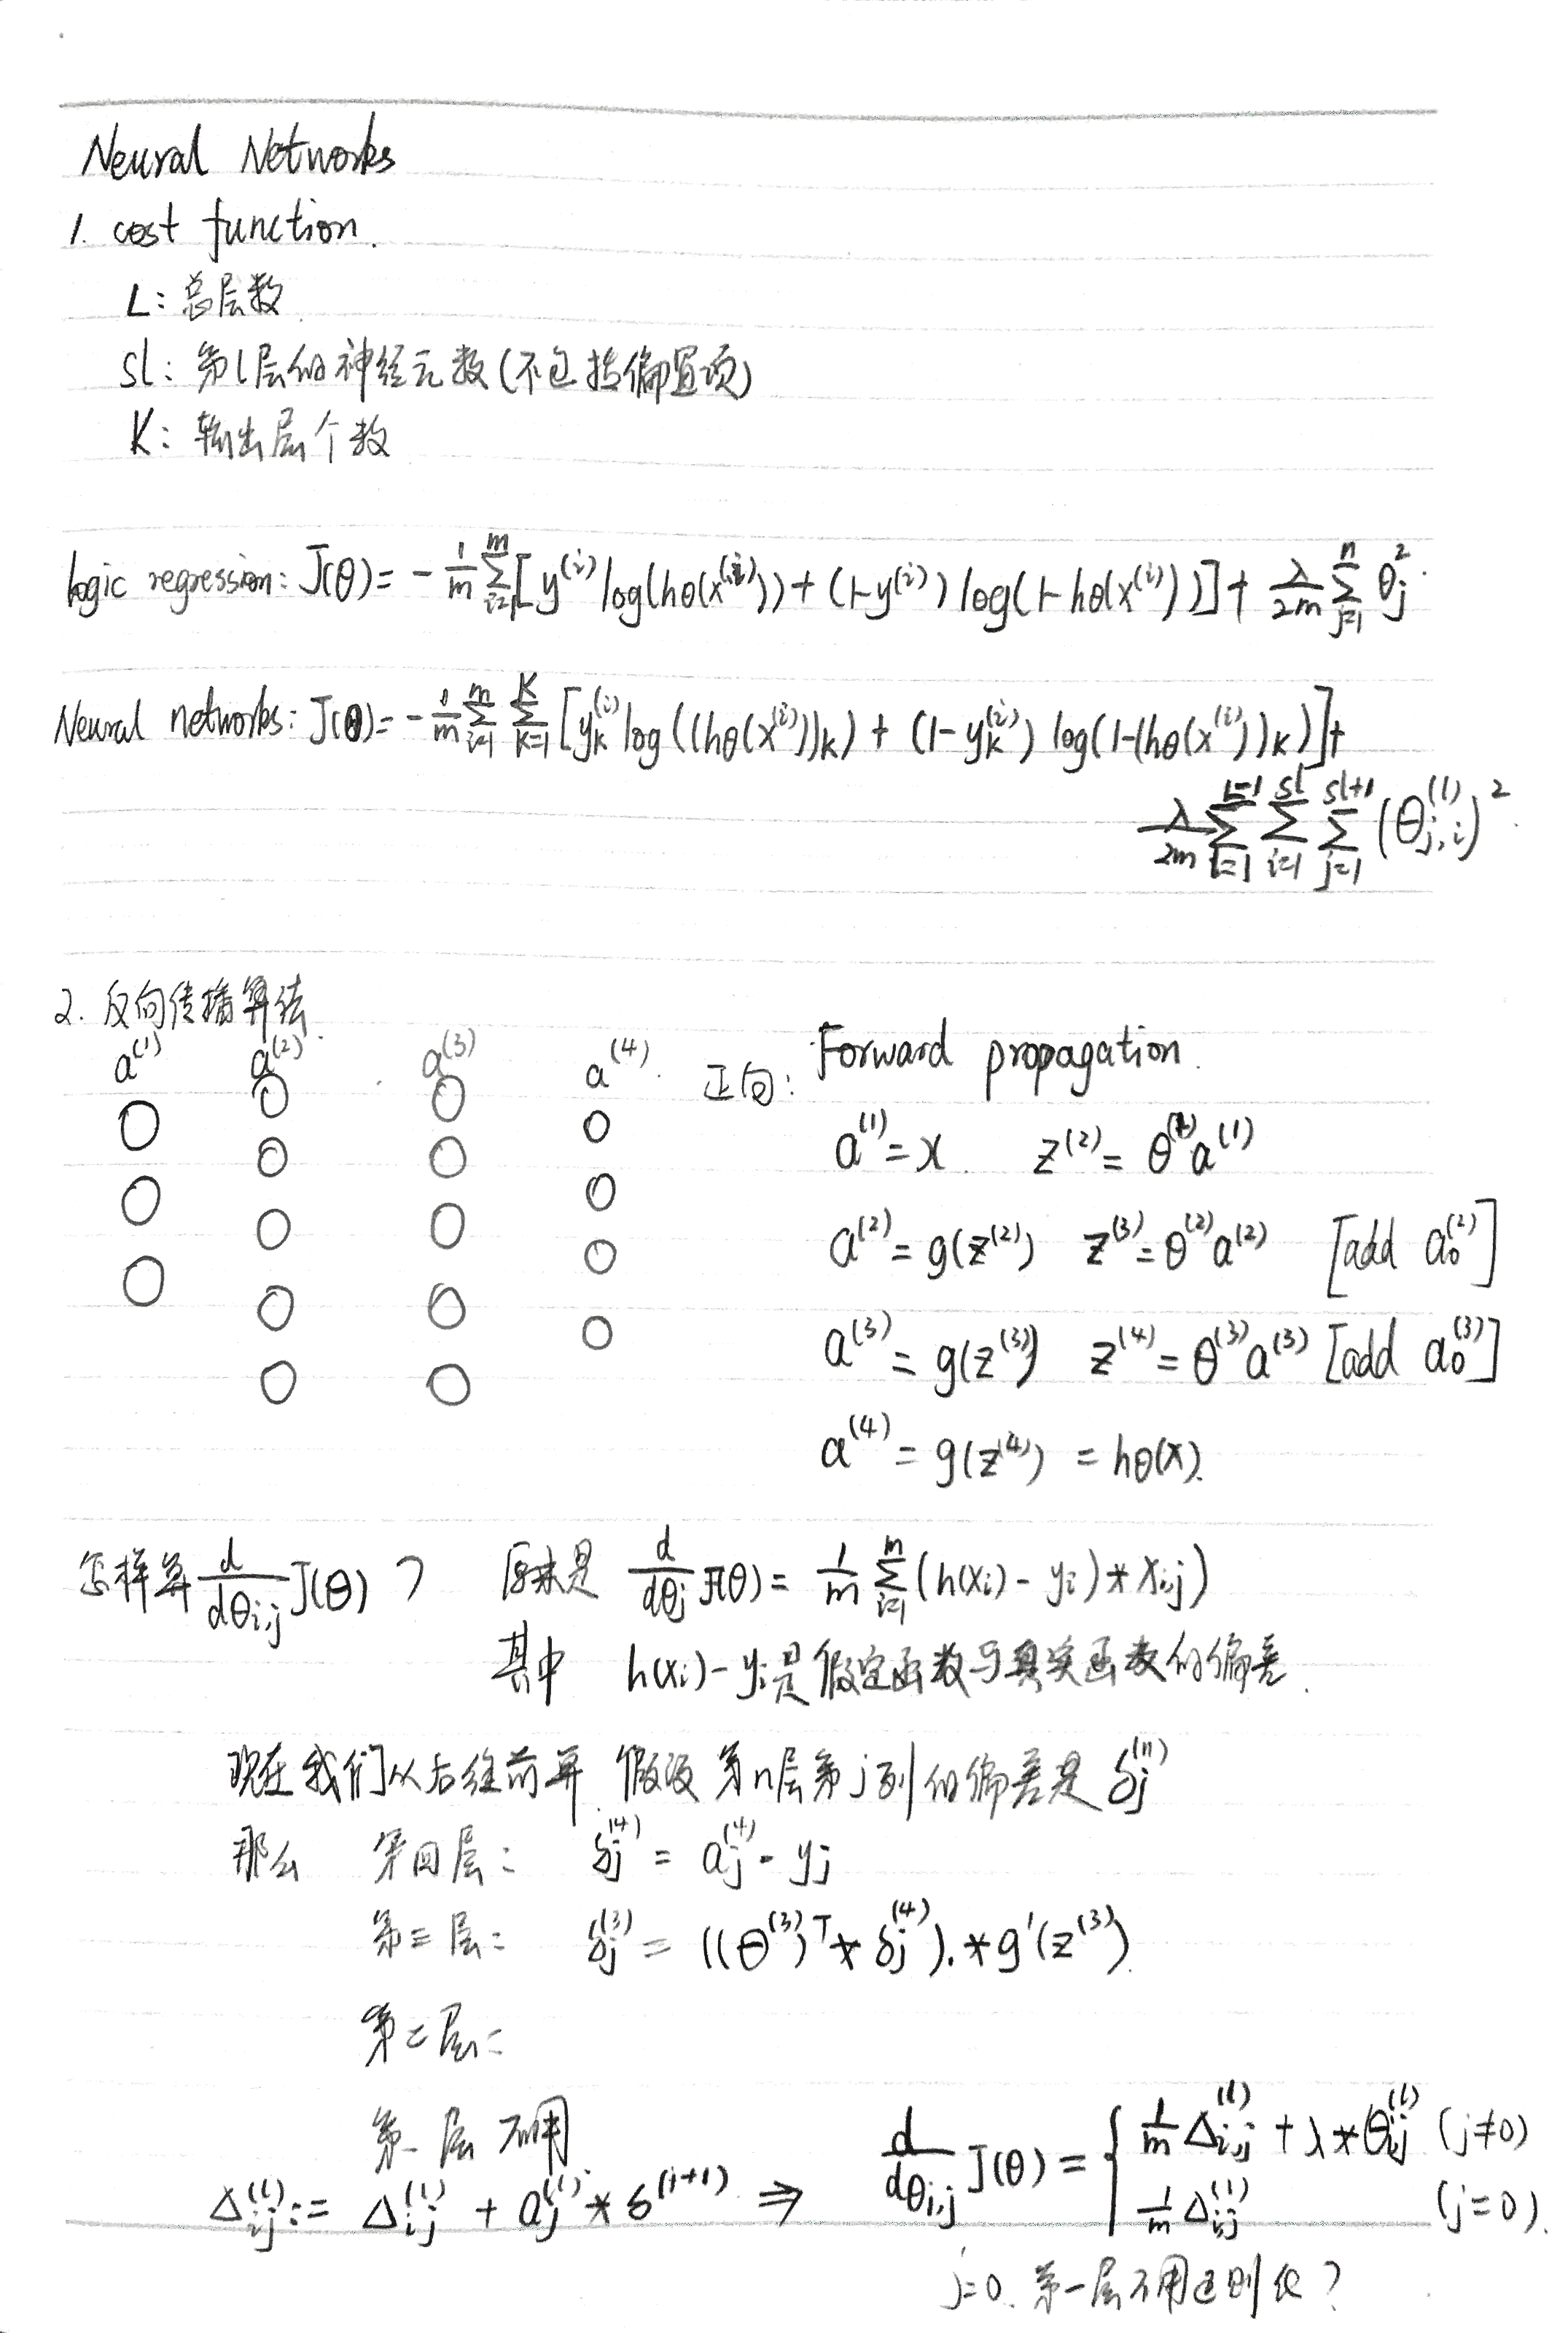 Neural Networks
1. cost function.
L: 总层数
sl: 第l层的神经元数(不包括偏置项)
K: 输出层个数
logic regression: J(θ) = -1/m Σ_{i=1}^{m} [y^{(i)} log(hθ(x^{(i)})) + (1-y^{(i)}) log(1-hθ(x^{(i)}))] + λ/2m Σ_{j=1}^{n} θ_j^2.
Neural networks: J(θ) = -1/m Σ_{i=1}^{m} Σ_{k=1}^{K} [y_k^{(i)} log((hθ(x^{(i)}))k) + (1-y_k^{(i)}) log(1-(hθ(x^{(i)}))k)] +
λ/2m Σ_{l=1}^{L-1} Σ_{i=1}^{sl} Σ_{j=1}^{sl+1} (θ_{j,i}^{(l)})^2.
2. 反向传播算法.
a^{(1)} a^{(2)} a^{(3)} a^{(4)}.
正向: Forward propagation.
a^{(1)} = x. z^{(2)} = θ^{(1)} a^{(1)}
a^{(2)} = g(z^{(2)}) z^{(3)} = θ^{(2)} a^{(2)} [add a_0^{(2)}]
a^{(3)} = g(z^{(3)}) z^{(4)} = θ^{(3)} a^{(3)} [add a_0^{(3)}]
a^{(4)} = g(z^{(4)}) = hθ(x).
怎样算 d/dθ_{i,j} J(θ) ? 原来是 d/dθ_j J(θ) = 1/m Σ_{i=1}^{m} (h(x_i) - y_i) * x_{i,j})
其中 h(x_i) - y_i是假定函数与真实函数的偏差.
现在我们从后往前算. 假设第n层第j列的偏差是 δ_j^{(n)}
那么 第四层: δ_j^{(4)} = a_j^{(4)} - y_j
第三层: δ_j^{(3)} = ((θ^{(3)})^T * δ_j^{(4)}) .* g'(z^{(3)}).
第二层:
第一层 不用
Δ_{ij}^{(l)} := Δ_{ij}^{(l)} + a_j^{(l)} * δ^{(i+1)} ⇒ d/dθ_{i,j} J(θ) = { 1/m Δ_{i,j}^{(l)} + λ * θ_{i,j}^{(l)} (j≠0)
1/m Δ_{i,j}^{(l)} (j=0).
j=0. 第一层不用正则化?